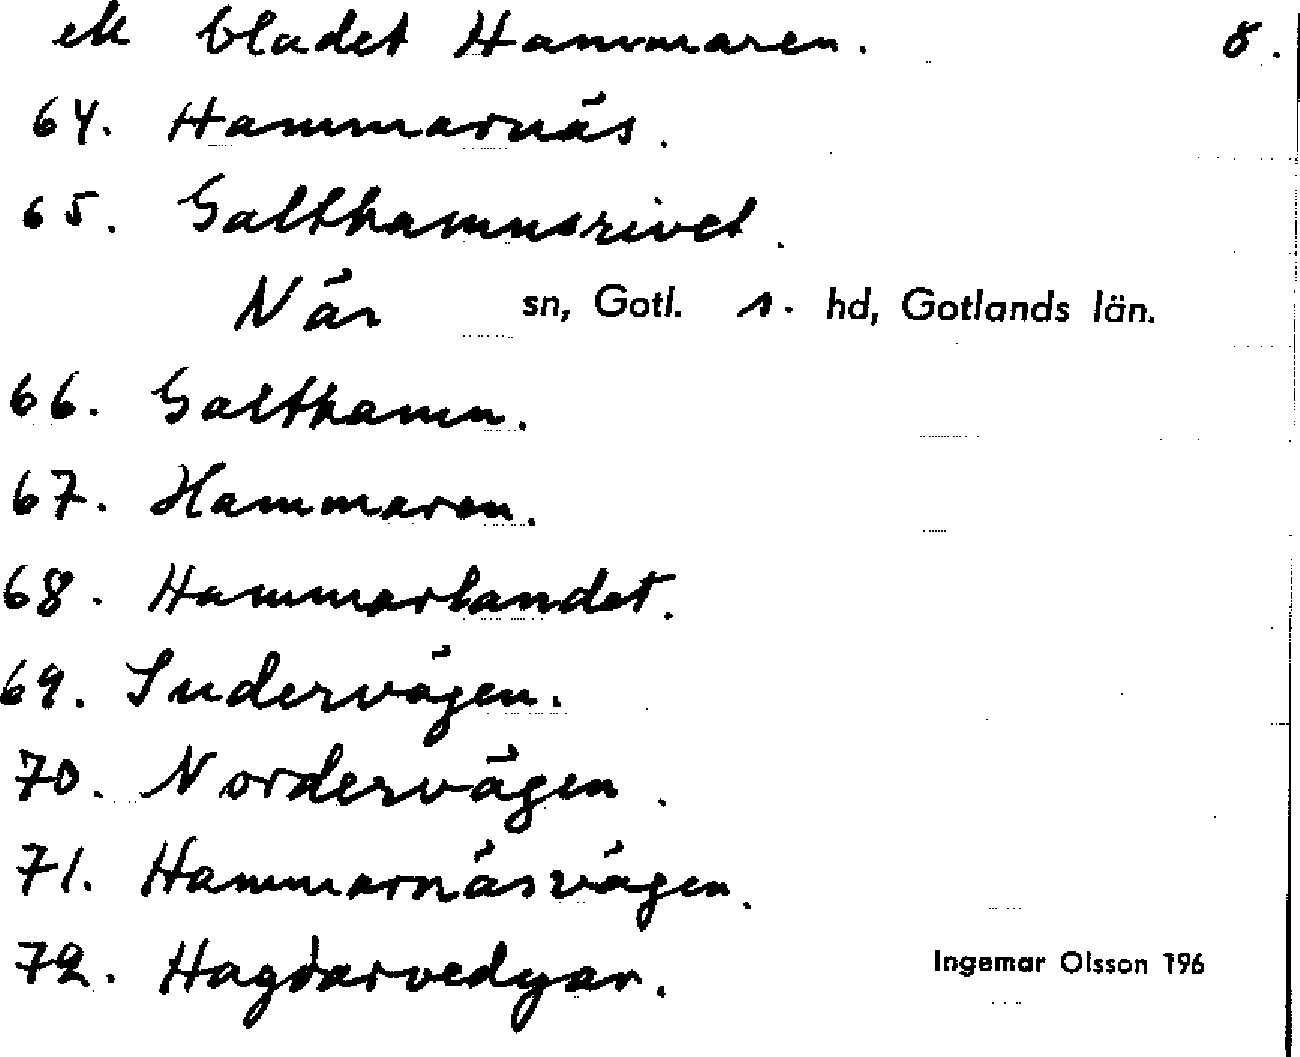 ek bladet Hammaren. 8.
64. Hammarnäs.
65. Salthamnsrivet.
När sn, Gotl. s. hd, Gotlands län.
66. Salthamn.
67. Hammaren.
68. Hammarlandet.
69. Sudervägen.
70. Nordervägen.
71. Hammarnäsvägen.
72. Hagdarvedgar.
Ingemar Olsson 196